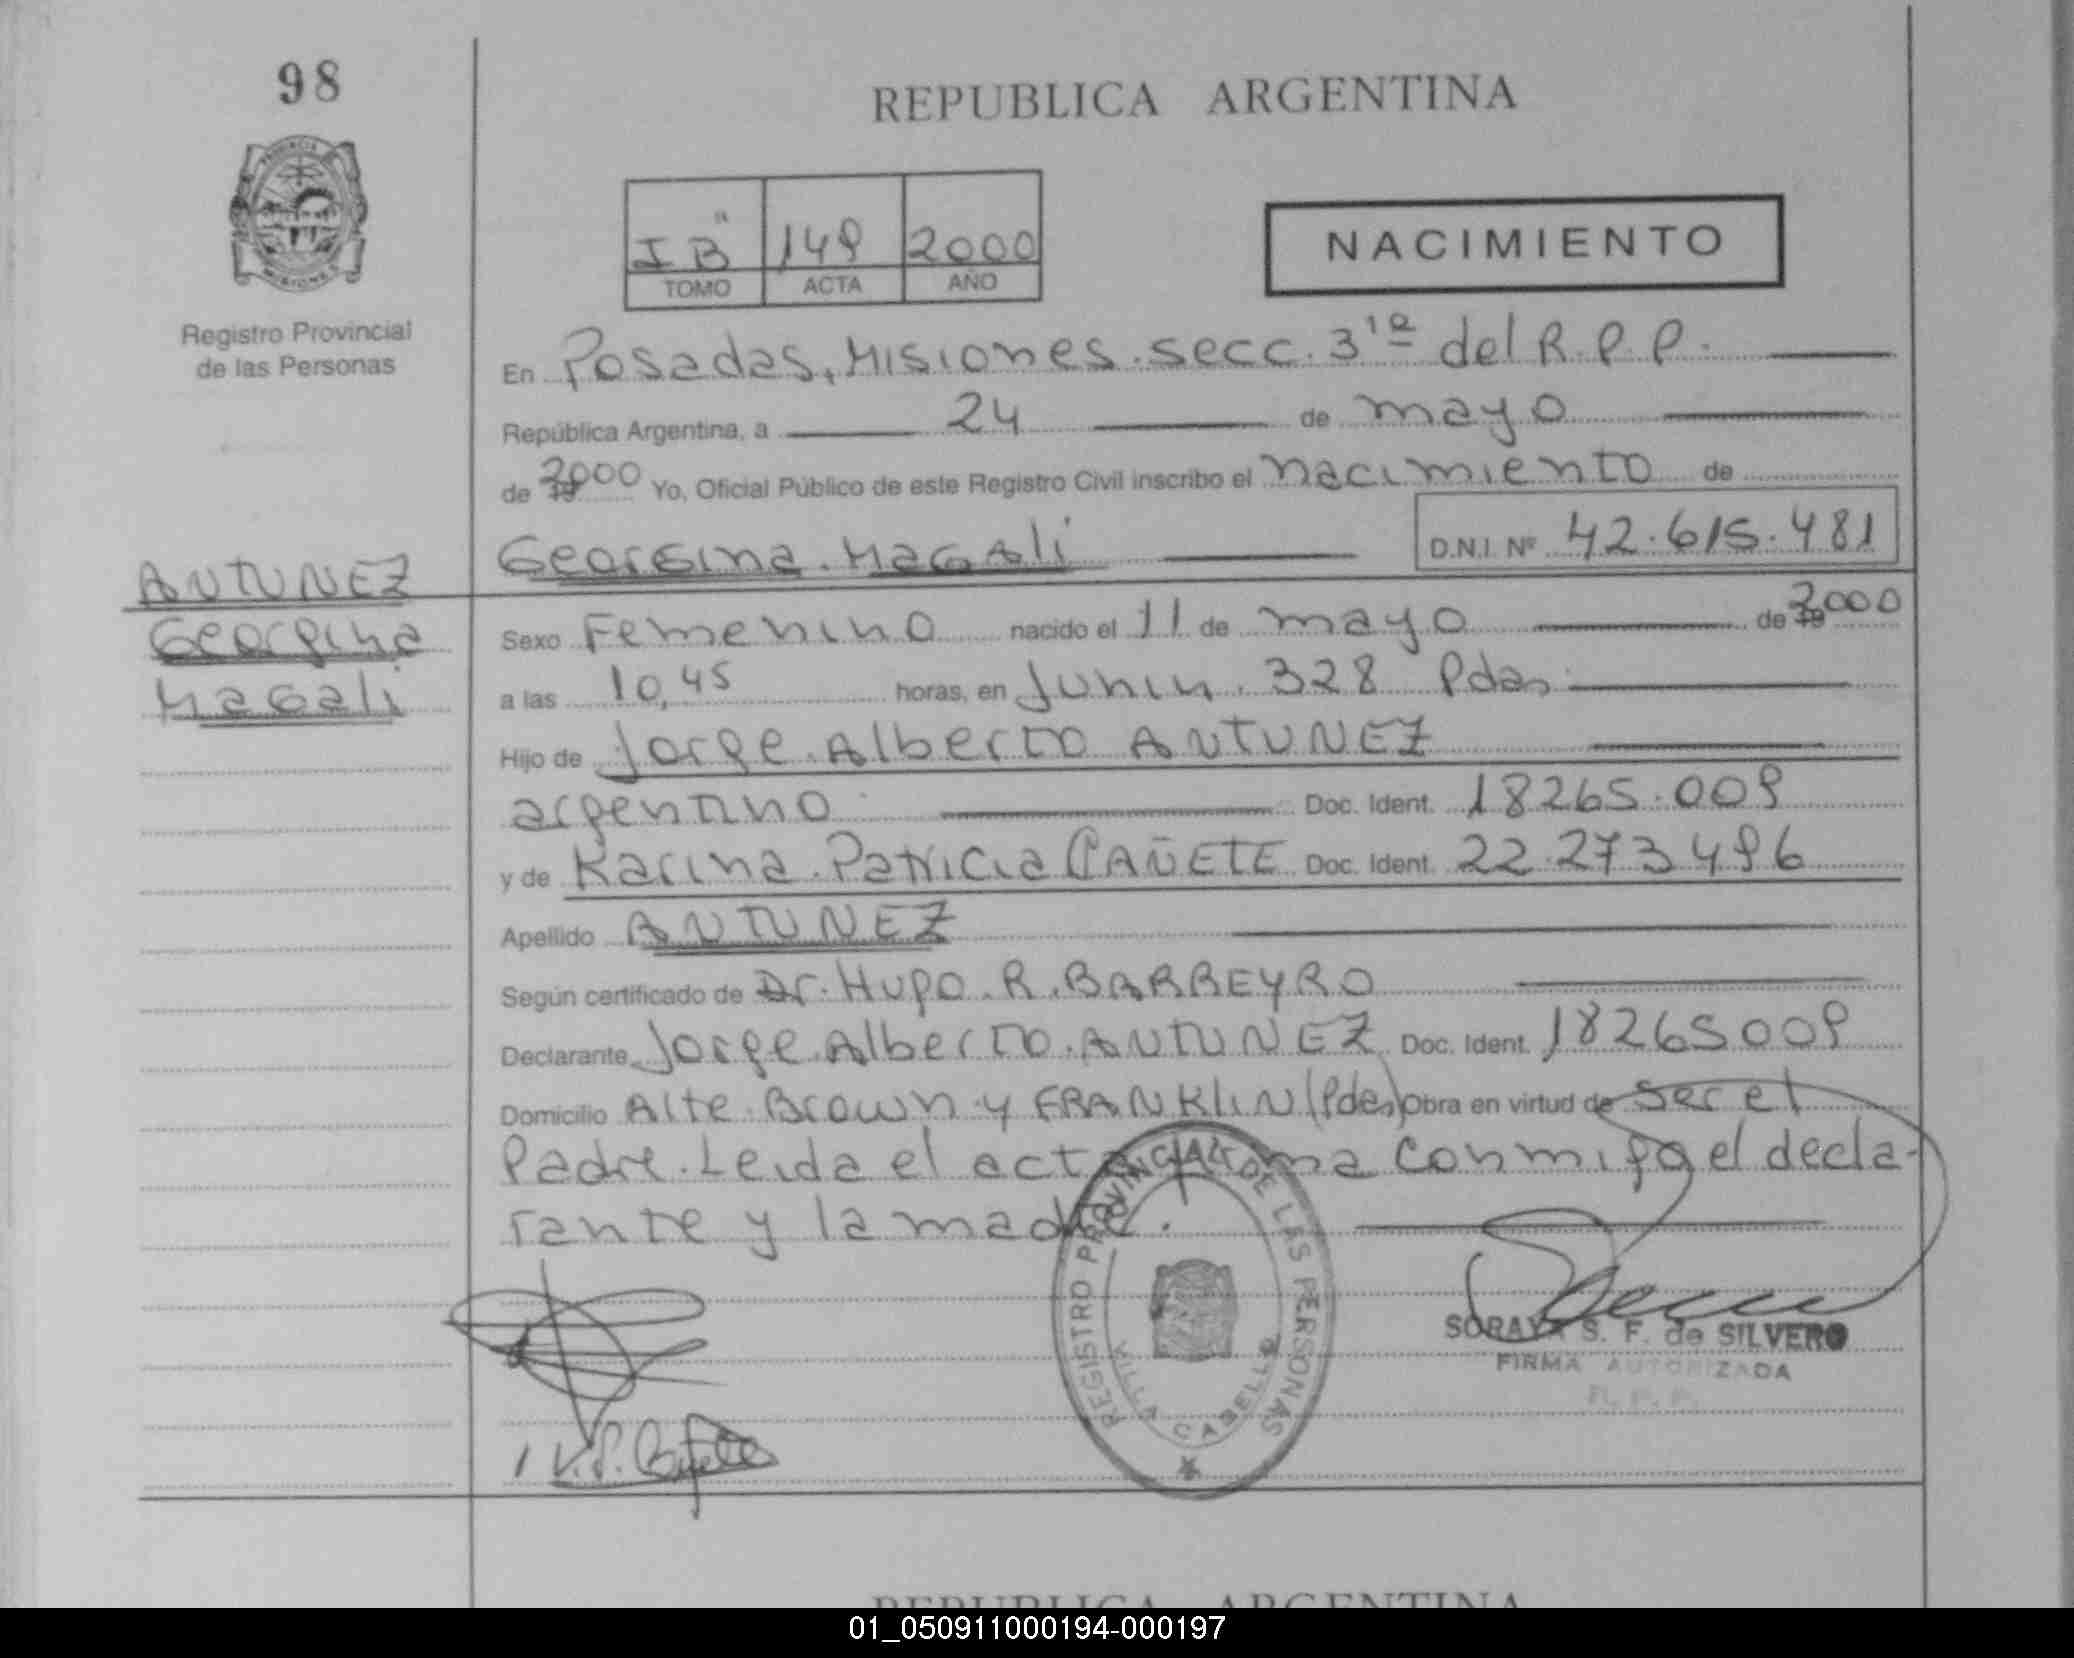 98
REPUBLICA ARGENTINA
PROVINCIA
MISIONES
I B" 149 2000
TOMO ACTA AÑO
NACIMIENTO
Registro Provincial
de las Personas
En Posadas, Misiones. secc. 3ra del R. P. P.
República Argentina, a 24 de mayo
de 2000 Yo, Oficial Público de este Registro Civil inscribo el nacimiento de
Georgina. Magali D.N.I. Nº 42.615.481
ANTUNEZ
Georgina
Magali
Sexo Femenino nacido el 11 de mayo de 2000
a las 10,45 horas, en Junin. 328 Pdas
Hijo de Jorge. Alberto ANTUNEZ
argentino Doc. Ident. 18265.009
y de Karina. Patricia CAÑETE Doc. Ident. 22.273496
Apellido ANTUNEZ
Según certificado de Dr. Hugo. R. BARREYRO
Declarante Jorge. Alberto. ANTUNEZ Doc. Ident. 18265009
Domicilio Alte. Brown y FRANKLIN (Pdas) Obra en virtud de ser el
Padre. Leida el acta conmigo el decla-
rante y la madre.
REGISTRO PROVINCIAL DE LAS PERSONAS
VILLA CABELLO
SORAYA S. F. de SILVERO
FIRMA AUTORIZADA
R. P. P.
REPUBLICA ARGENTINA
01_050911000194-000197